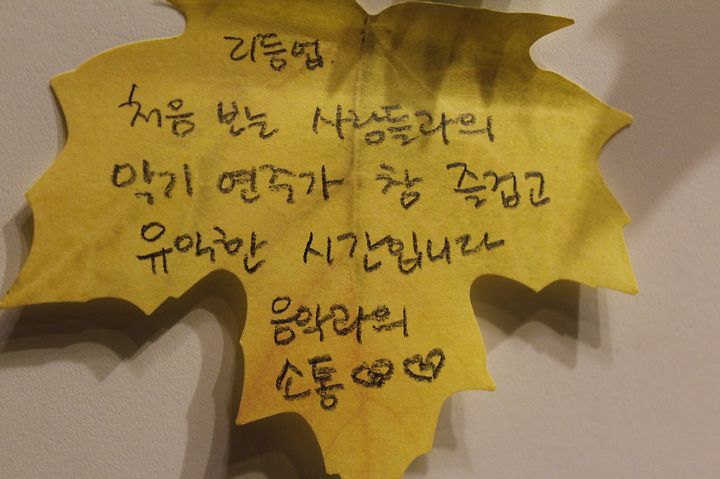 리듬업.
처음 보는 사람들과의
악기 연주가 참 즐겁고
유익한 시간입니다
음악과의
소통♡♡